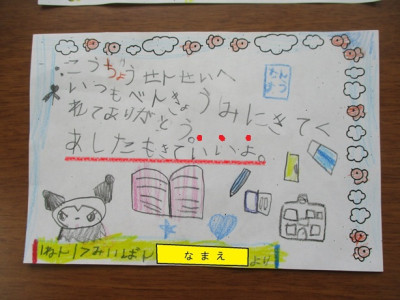 こうちょうせんせいへ
いつもべんきょうみにきてく
れてありがとう。
あしたもきていいよ。
1ねん1くみ ばん
なまえ
より